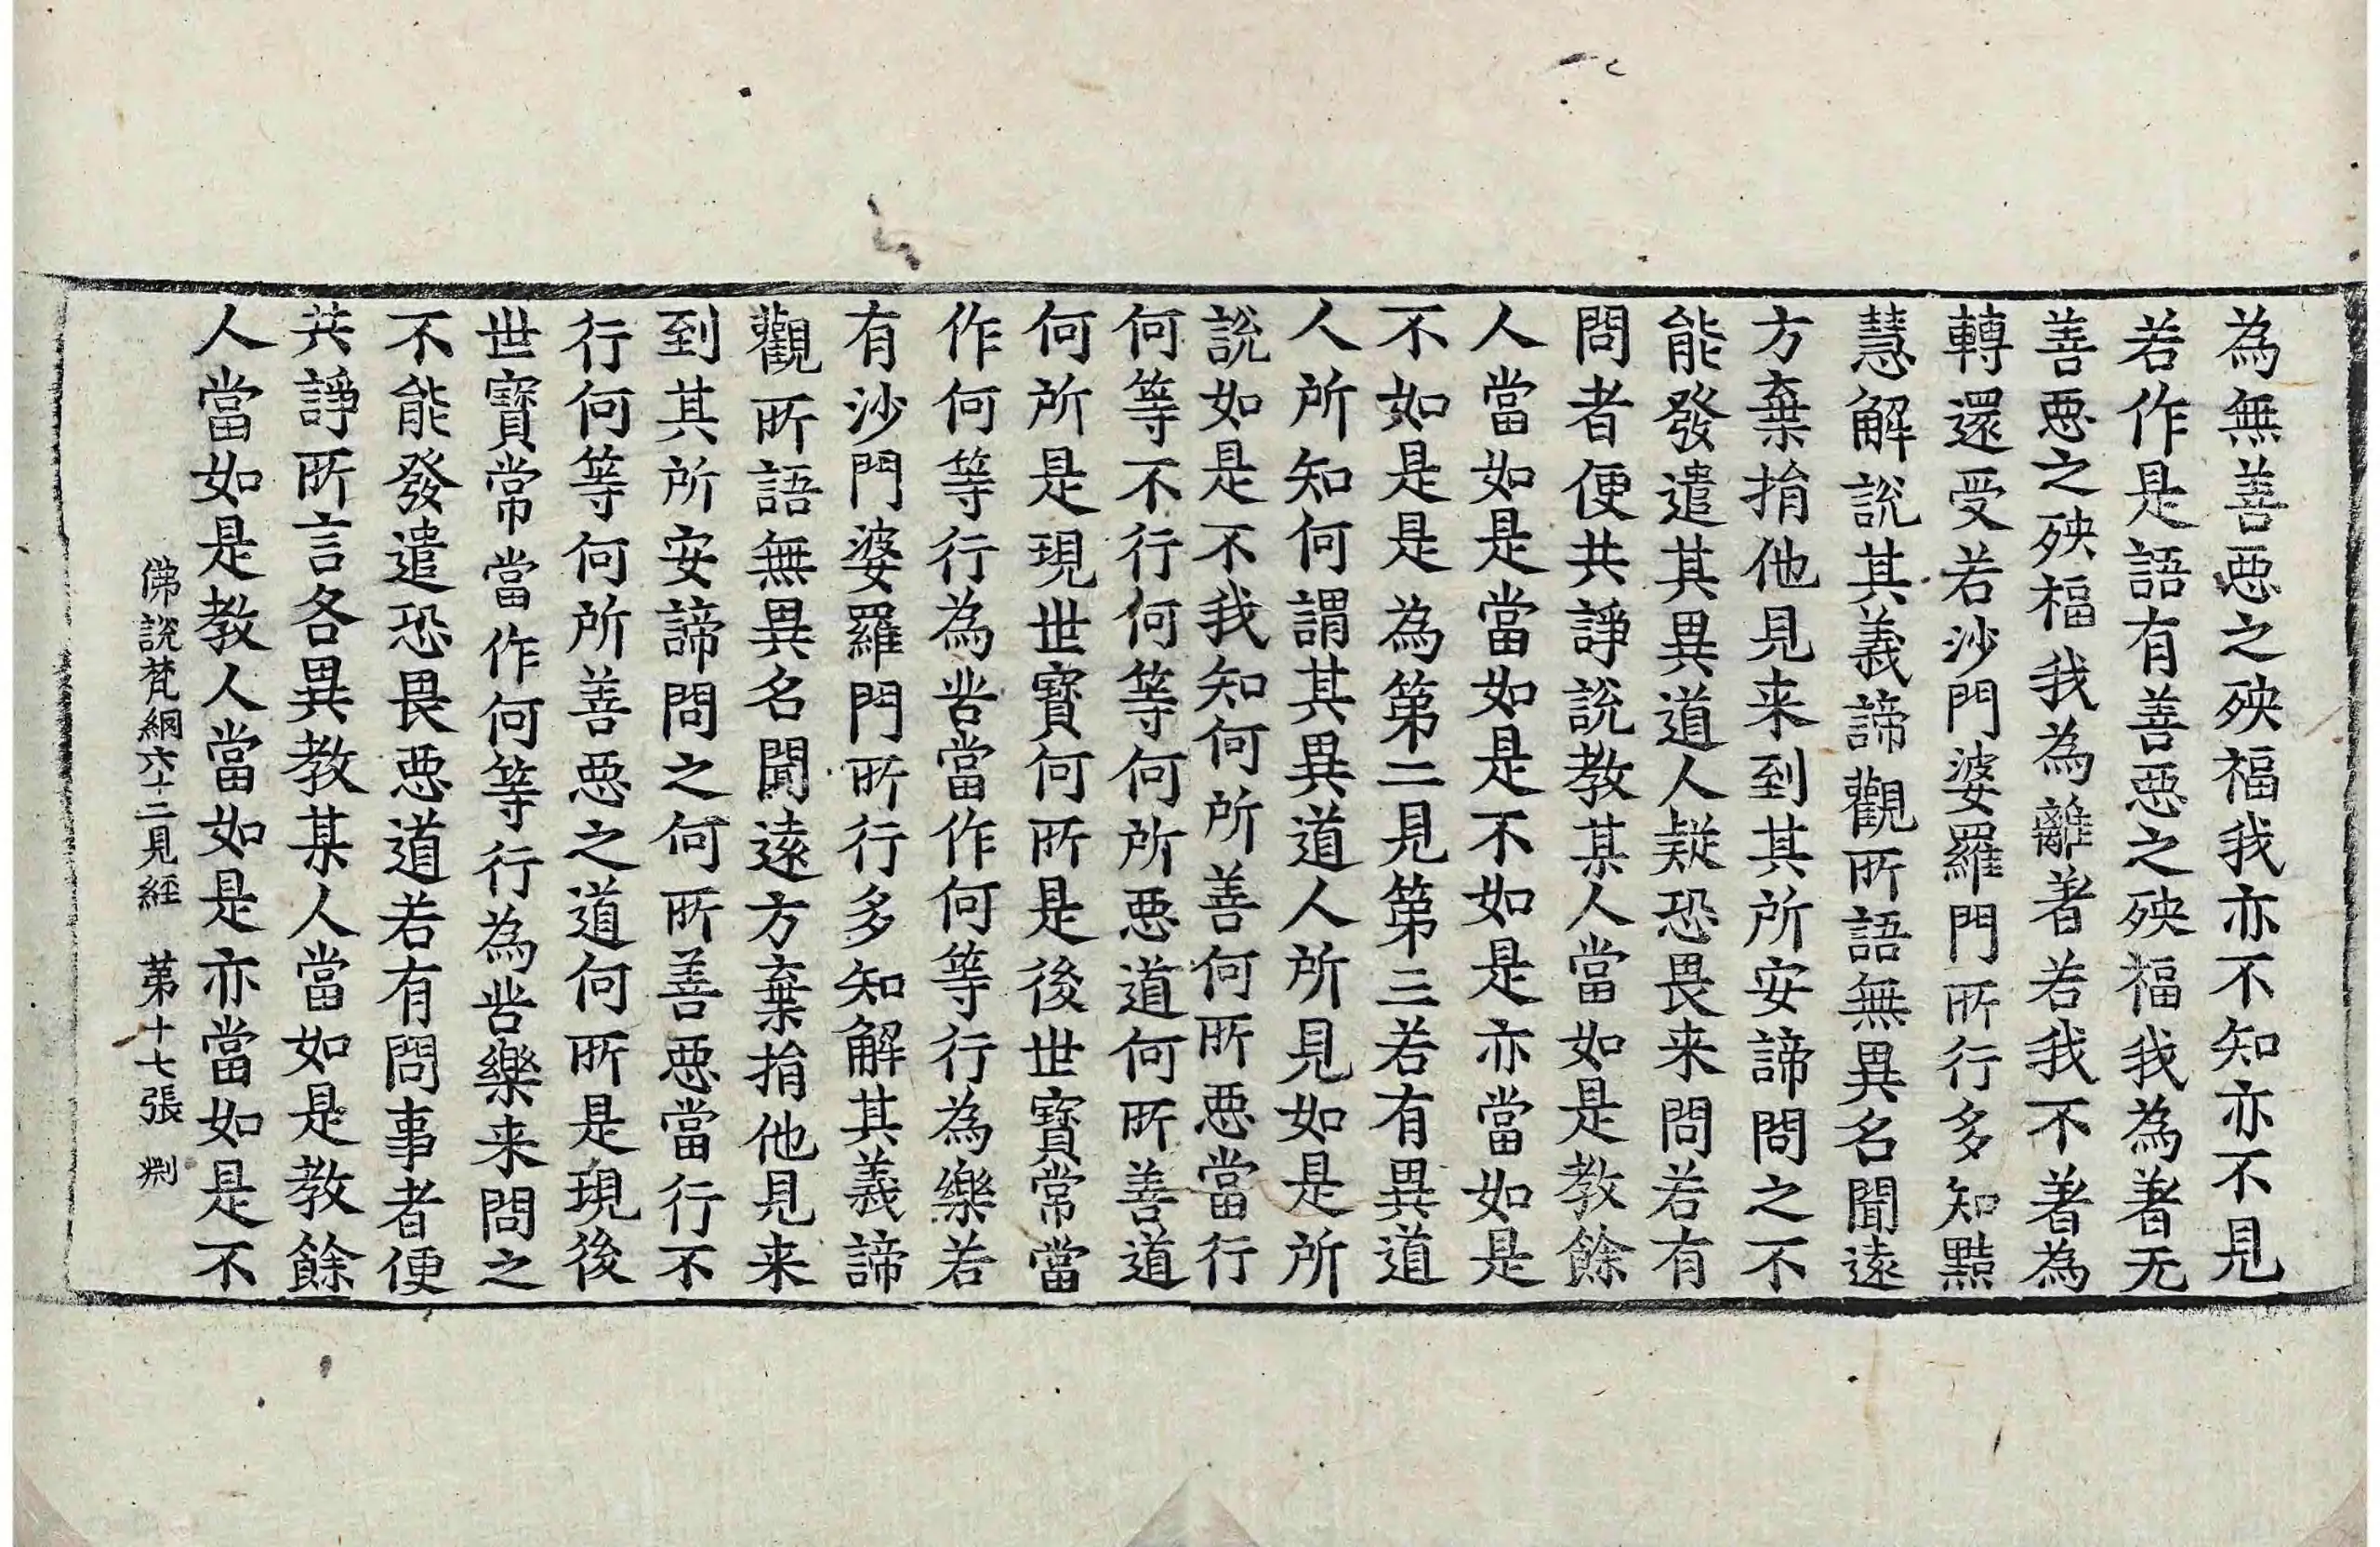 為無善惡之殃福我亦不知亦不見
若作是語有善惡之殃福我為著无
善惡之殃福我為離著若我不著為
轉還受若沙門婆羅門所行多知黠
慧解說其義諦觀所語無異名聞遠
方棄捐他見来到其所安諦問之不
能發遣其異道人疑恐畏来問若有
問者便共諍說教某人當如是教餘
人當如是當如是不如是亦當如是
不如是是為第二見第三若有異道
人所知何謂其異道人所見如是所
說如是不我知何所善何所惡當行
何等不行何等何所惡道何所善道
何所是現世寶何所是後世寶常當
作何等行為甞當作何等行為樂若
有沙門婆羅門所行多知解其義諦
觀所語無異名聞遠方棄捐他見来
到其所安諦問之何所善惡當行不
行何等何所善惡之道何所是現後
世寶常當作何等行為甞樂来問之
不能發遣恐畏惡道若有問事者便
共諍所言各異教某人當如是教餘
人當如是教人當如是亦當如是不
佛說梵網六十二見經 第十七張